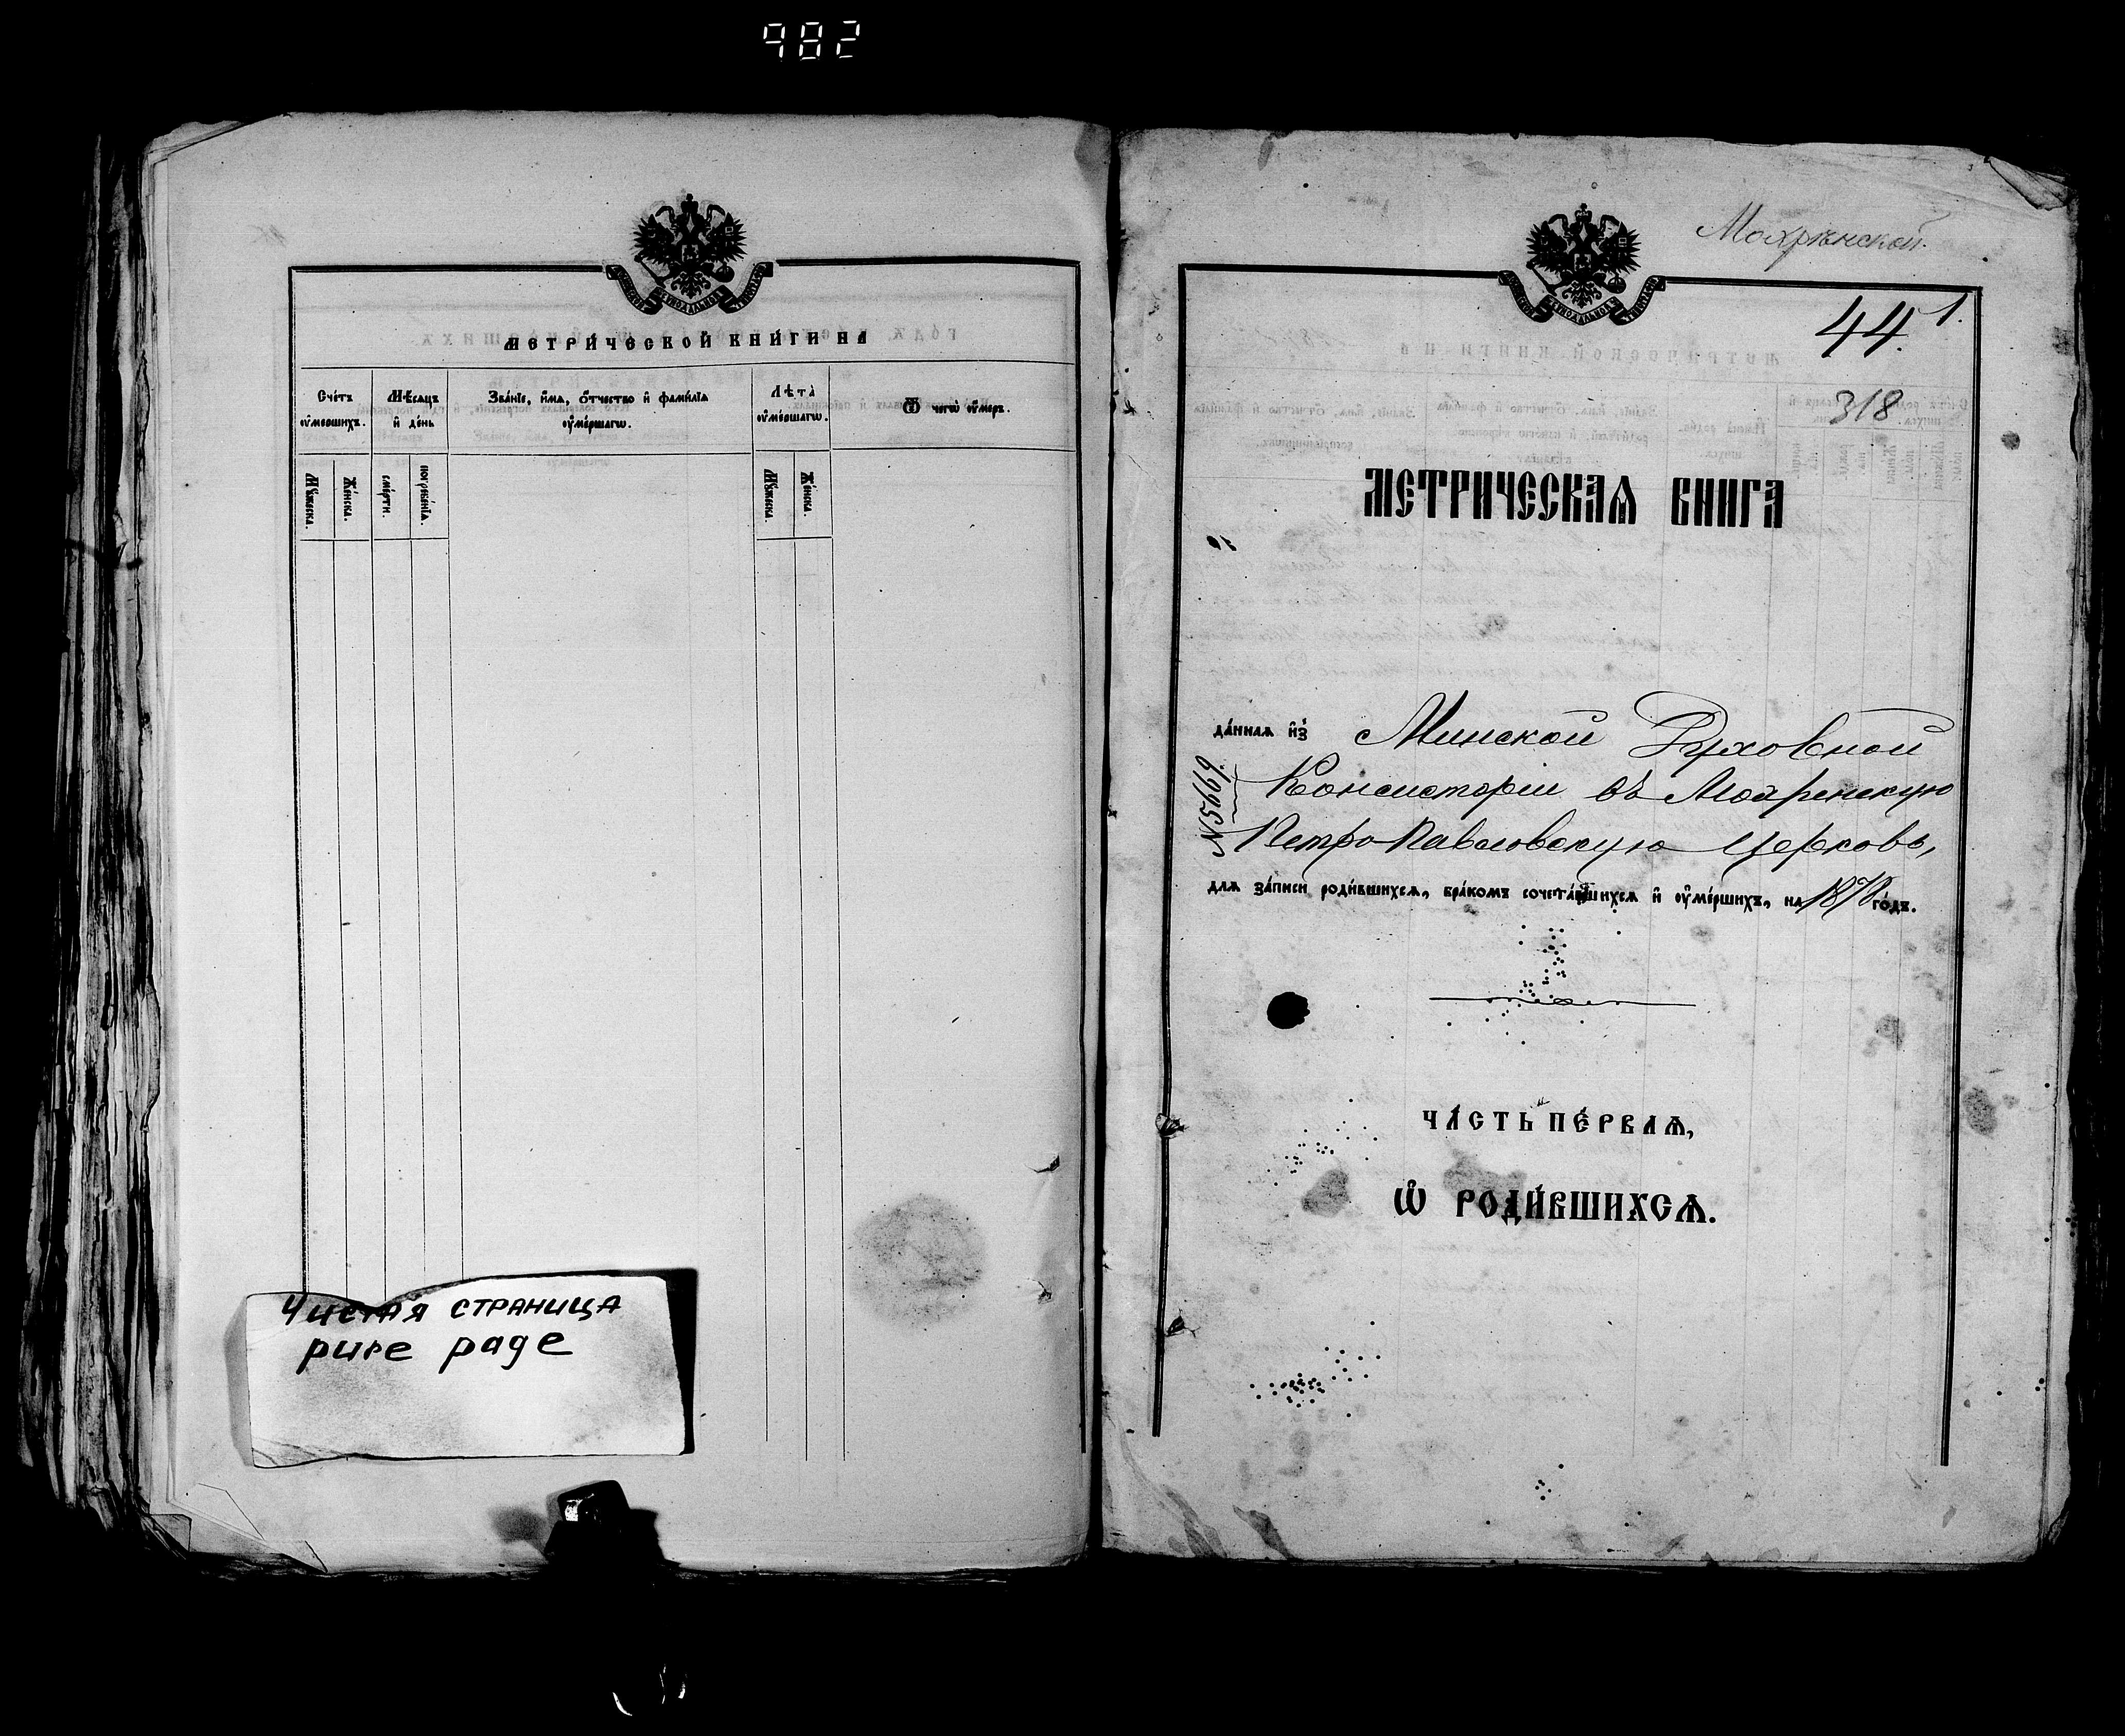 982
МЕТРИ́ЧЕСКОЙ КНИ́ГИ НА
Сче́тъ ᲂу҆ме́ршихъ.
Мѣ́сяцъ и҆ де́нь
Зва́нїе, и҆́мѧ, ѻ҆́тчество и҆ фами́лїѧ ᲂу҆ме́ршагѡ.
Лѣ́та ᲂу҆ме́ршагѡ.
Ѿ чегѡ̀ ᲂу҆́меръ.
Мꙋ́жеска.
Же́нска.
сме́рти.
погребе́нїѧ.
Мꙋ́жеска.
Же́нска.
Чистая страница
pure page
Мохренской.
44. 1.
318
МЕТРИЧЕСКАѦ КНИГА
да́ннаѧ и҆з̾ Минской Духовной
Консисторіи въ Мохренскую
№ 5669.
Петро-Павловскую церковь,
длѧ за́писи роди́вшихсѧ, бра́комъ сочета́вшихсѧ и҆ ᲂу҆ме́ршихъ, на 1878 го́дъ.
ЧА́СТЬ ПЕ́РВАѦ,
Ѽ РОДИ́ВШИХСѦ.